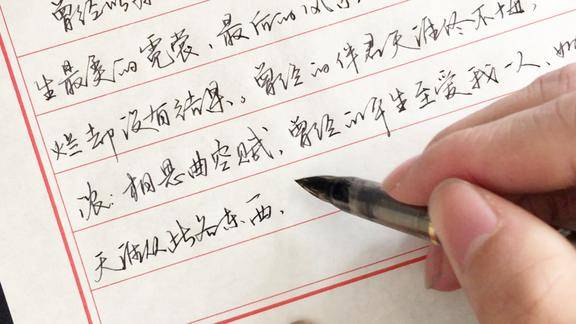 曾经
生最美的霓裳、最后的风
烂却没有结果。曾经的伴君天涯终不悔,
相思曲空赋,曾经的半生至爱我一人、如
天涯从此各东西.